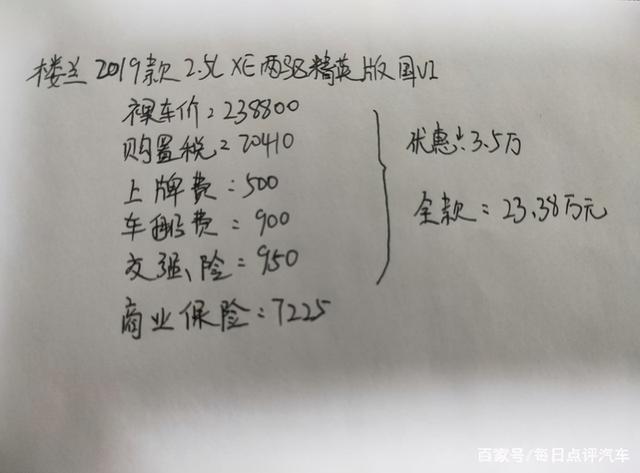 楼兰 2019款 2.5L XE两驱精英版国VI
裸车价:238800
购置税:20410
上牌费:500
车船费:900
交强险:950
商业保险:7225
优惠:3.5万
全款:23.38万元
百家号/每日点评汽车